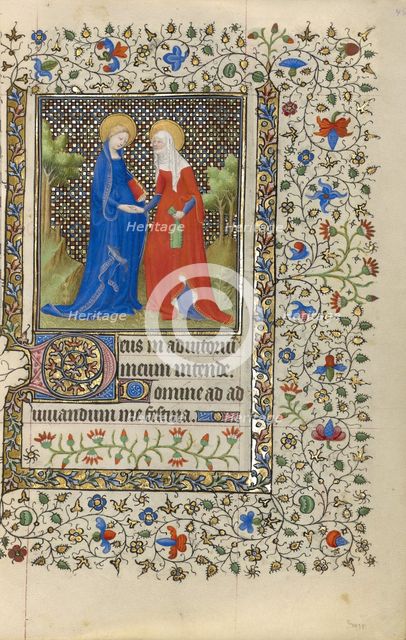 Heritage Heritage
Heritage Heritage
Heritage Heritage
Deus in adiutoriu
meum intende.
Domine ad ad
iuuandum me festina.